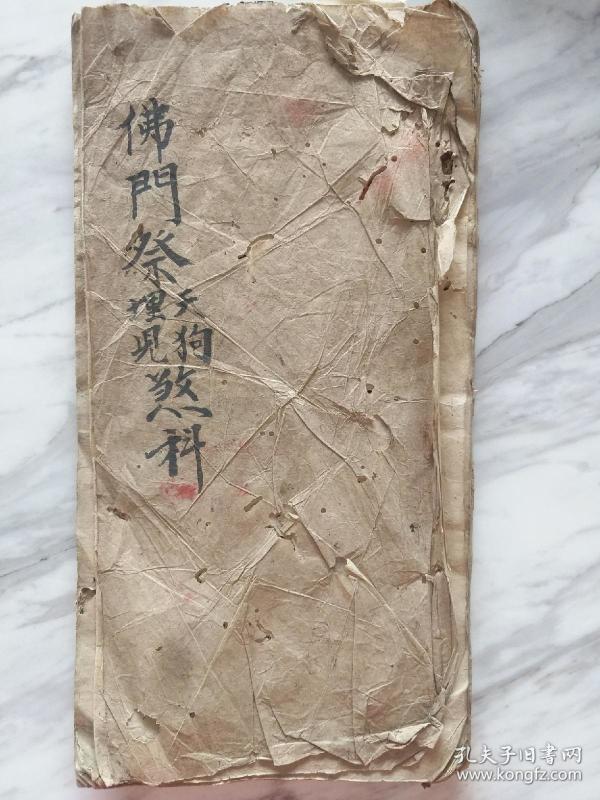 佛門祭天狗埋児煞科
孔夫子旧書网
www.kongfz.com